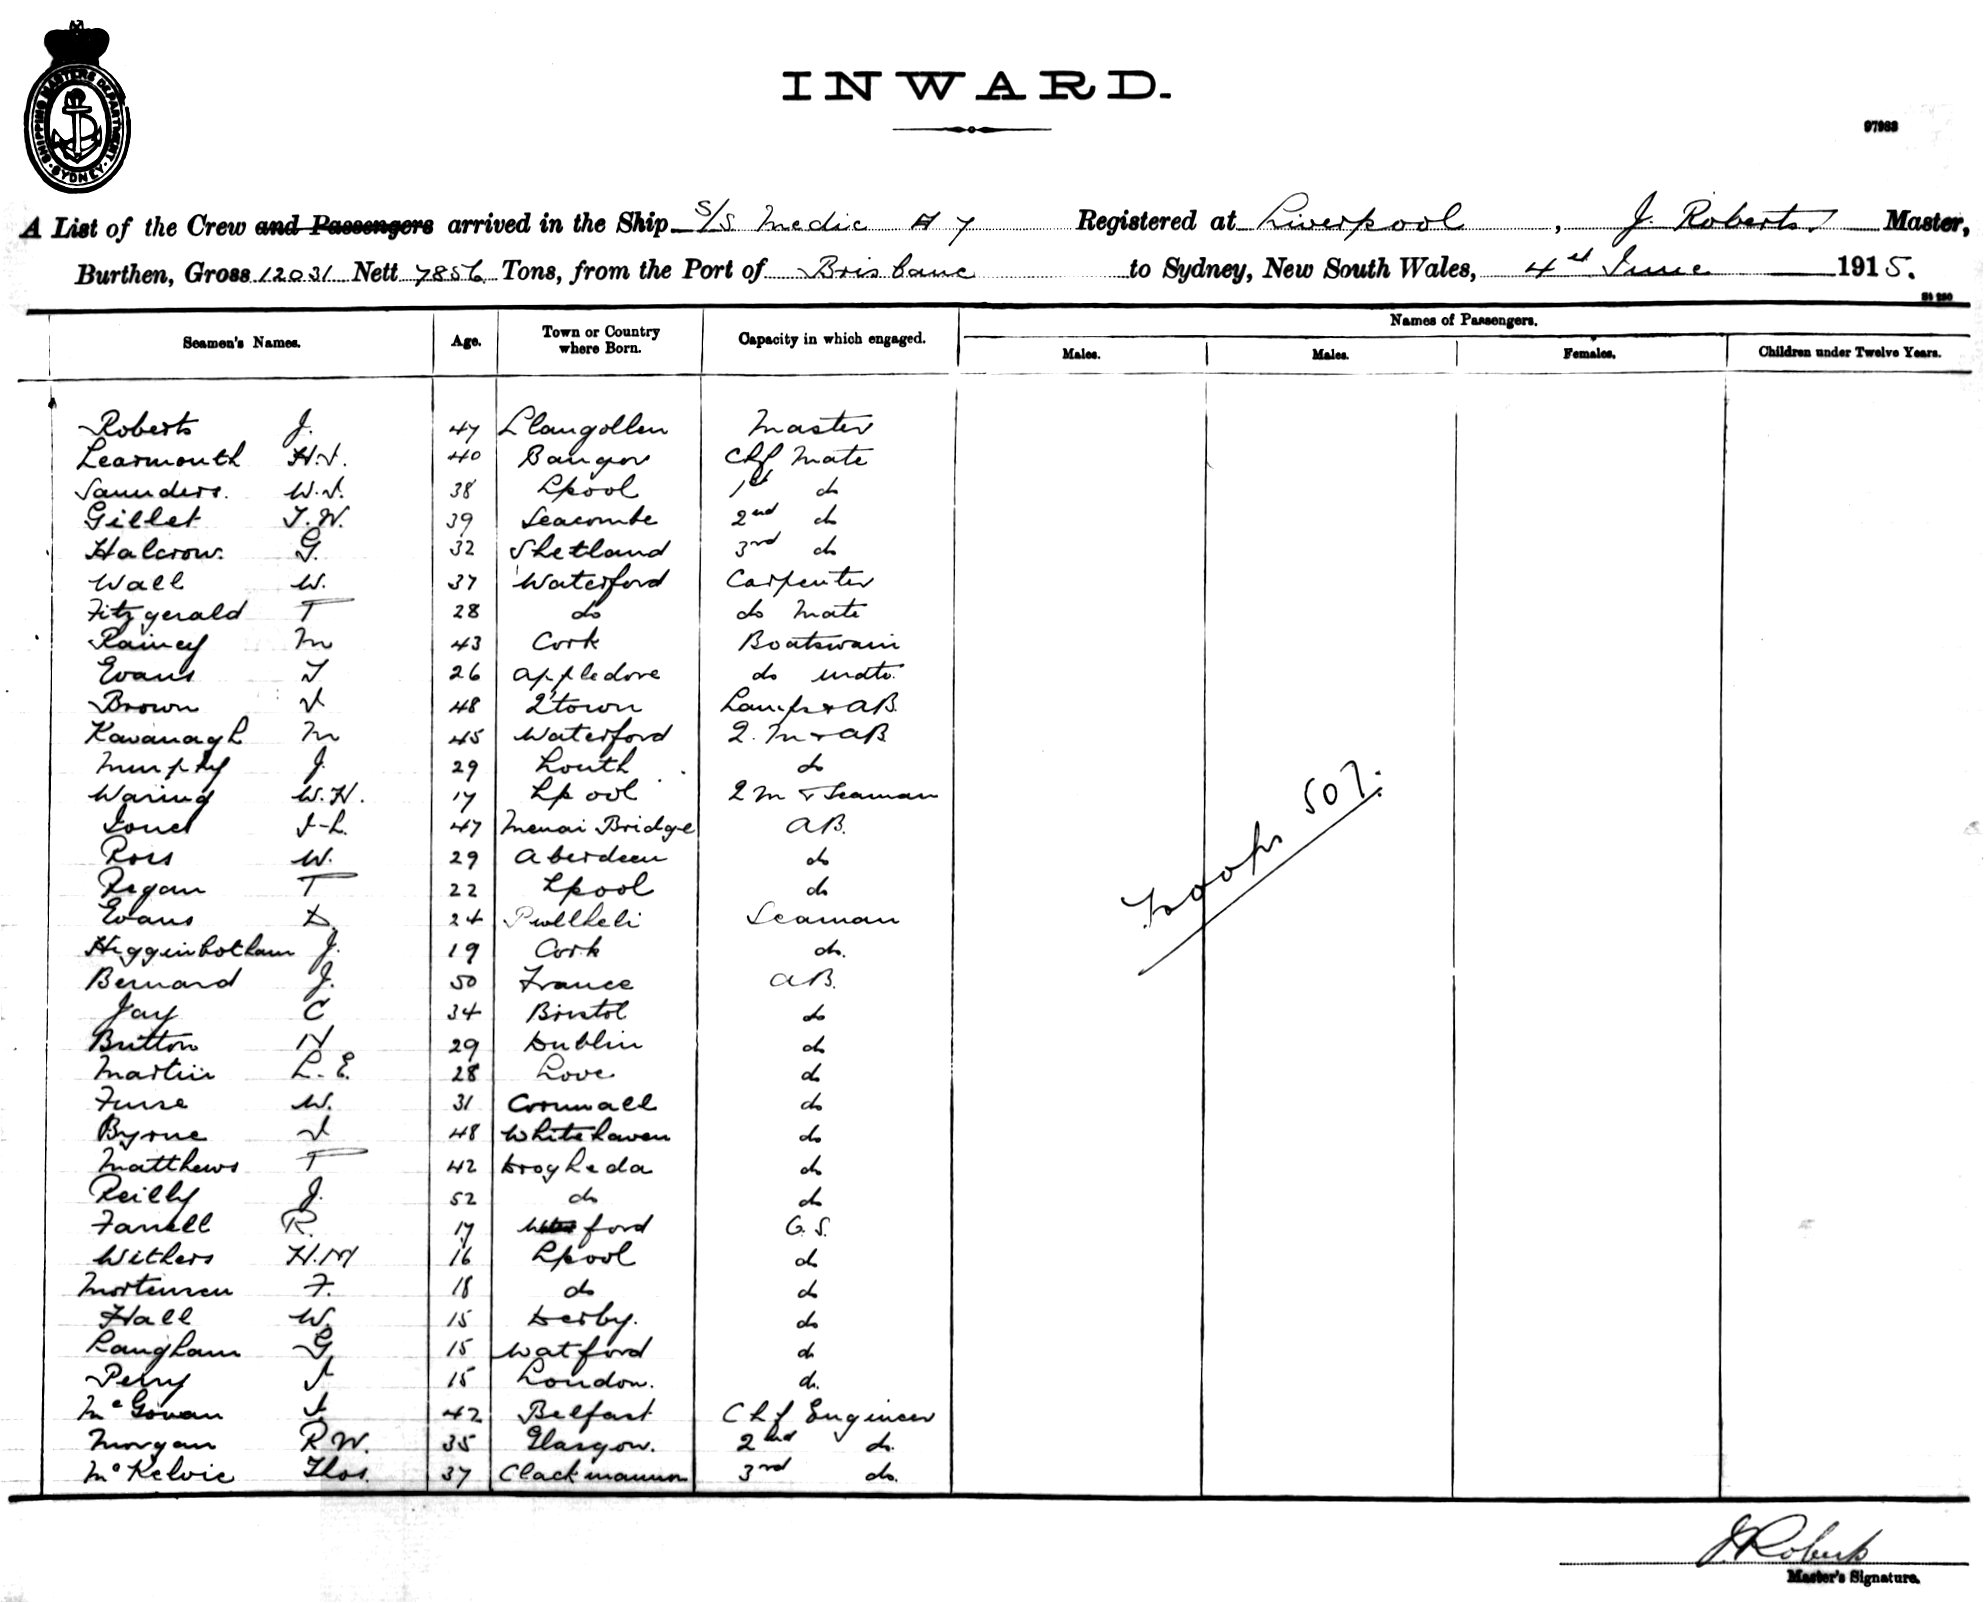 SHIPPING MASTERS DEPARTMENT. SYDNEY
INWARD.
97963
A List of the Crew and Passengers arrived in the Ship S/S Medic A 7 Registered at Liverpool, J. Roberts, Master,
Burthen, Gross 12031 Nett 7856 Tons, from the Port of Brisbane to Sydney, New South Wales, 4th June 1915.
St 250
Seamen's Names. Age. Town or Country where Born. Capacity in which engaged. Names of Passengers.
Males. Males. Females. Children under Twelve Years.
Roberts J. 47 Llangollen Master
Learmouth H.J. 40 Bangor Chf Mate
Saunders. W.J. 38 Lpool 1st do
Gillet T.W. 39 Seacombe 2nd do
Halcrow. G. 32 Shetland 3rd do
Wall W. 37 Waterford Carpenter
Fitzgerald T 28 do do Mate
Rainey M 43 Cork Boatswain
Evans T 26 Appledore do Mate
Brown J 48 Q'town Lamps & AB
Kavanagh M 45 Waterford Q. M & AB
Murphy J. 29 Louth do
Waring W.H. 17 Lpool Q M & Seaman
Jones J-L. 47 Menai Bridge AB.
Ross W. 29 Aberdeen do
Regan T 22 Lpool do
Evans D. 24 Pwllheli Seaman
Higginbotham J. 19 Cork do.
Bernard J. 50 France AB.
Jay C 34 Bristol do
Britton N 29 Dublin do
Martin L. E. 28 Love do
Furse W. 31 Cornwall do
Byrne J 48 Whitehaven do
Matthews T 42 Drogheda do
Reilly J. 52 do do
Farrell R. 17 ford O.S.
Withers H.M 16 Lpool do
Mortensen F. 18 do do
Hall W. 15 Derby. do
Langham G. 15 Watford do
Perry J 15 London. do.
McGowan J. 42 Belfast Chf Engineer
Morgan R.W. 35 Glasgow. 2nd do.
McKelvie Thos. 37 Clackmannan 3rd do.
Troops 507.
J Roberts
Master's Signature.